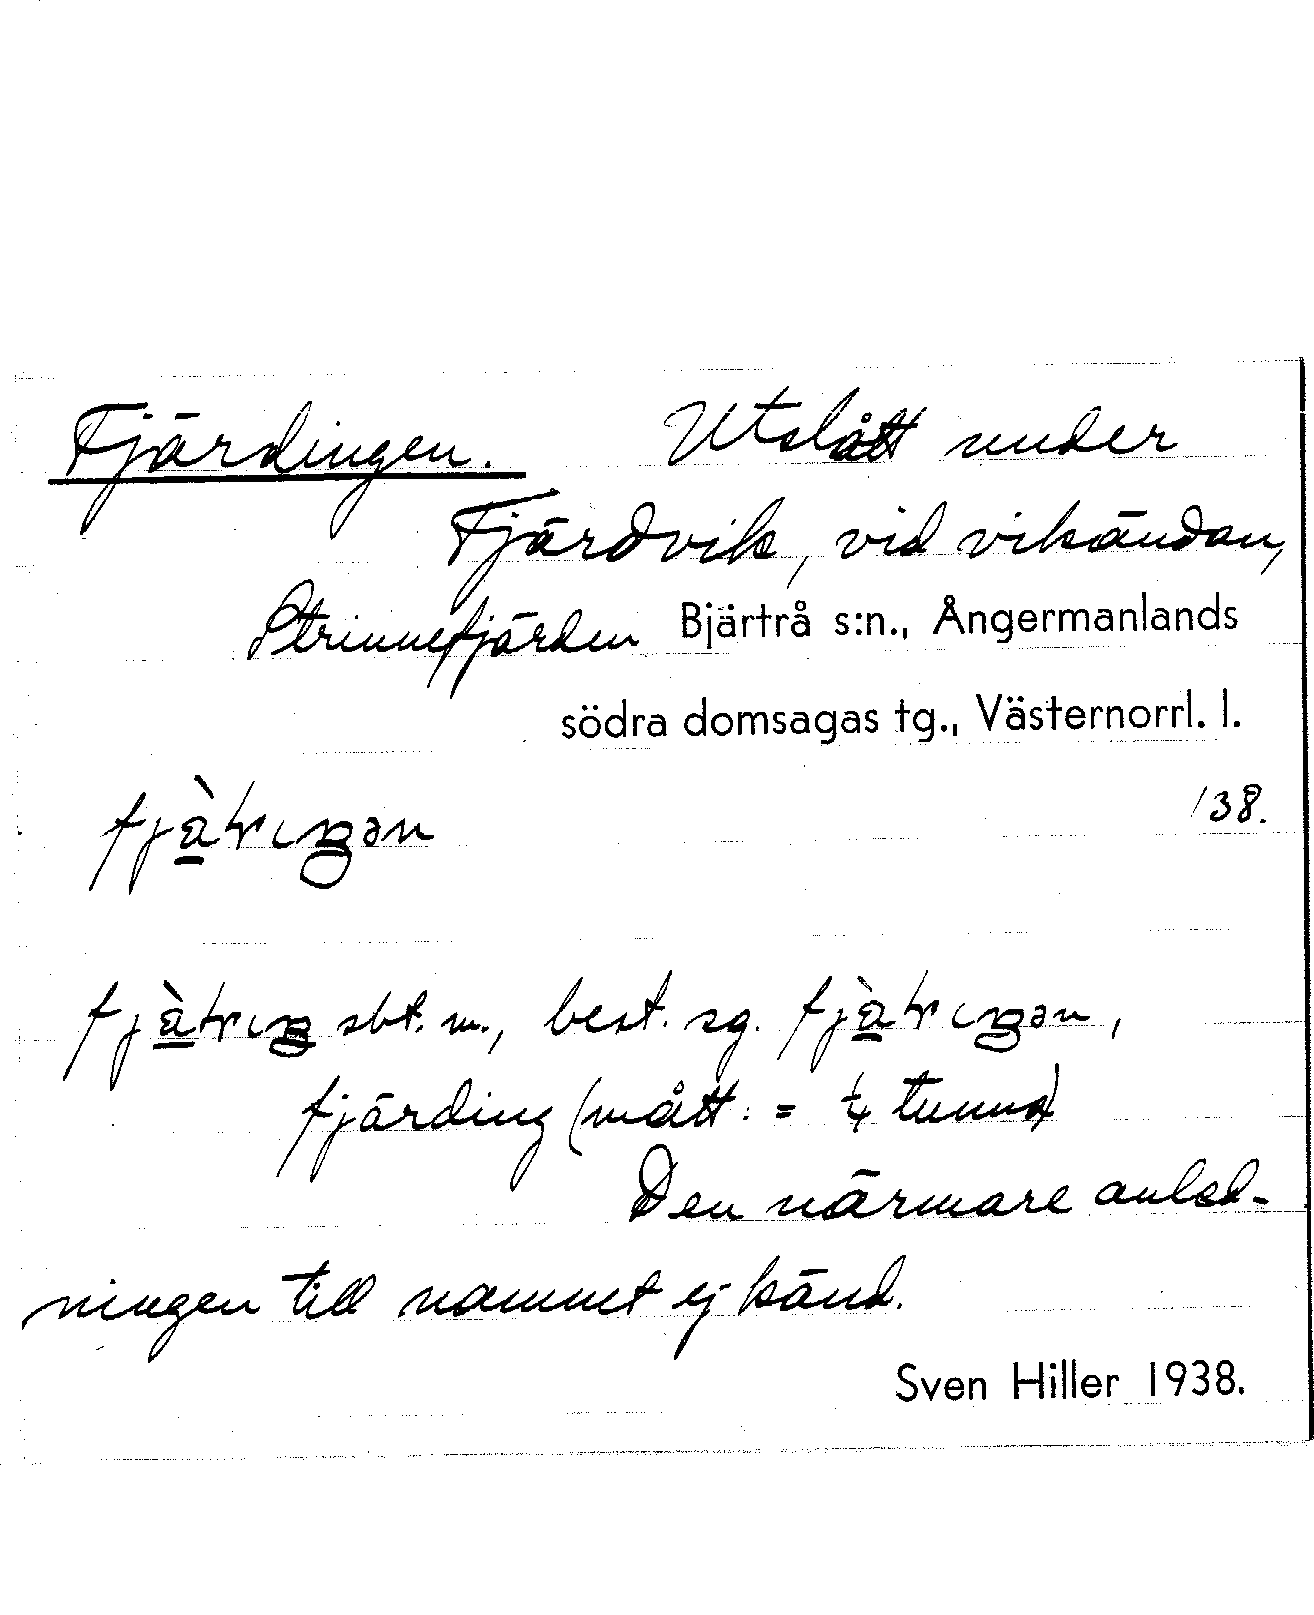 Fjärdingen. Utslått under
Fjärdvik, vid vikändan,
Strinnefjärden Bjärtrå s:n., Ångermanlands
södra domsagas tg., Västernorrl. l.
138.
sbt. m., best. sg.
fjärding (mått: = 1/4 tunna)
Den närmare anled-
ningen till namnet ej känd.
Sven Hiller 1938.